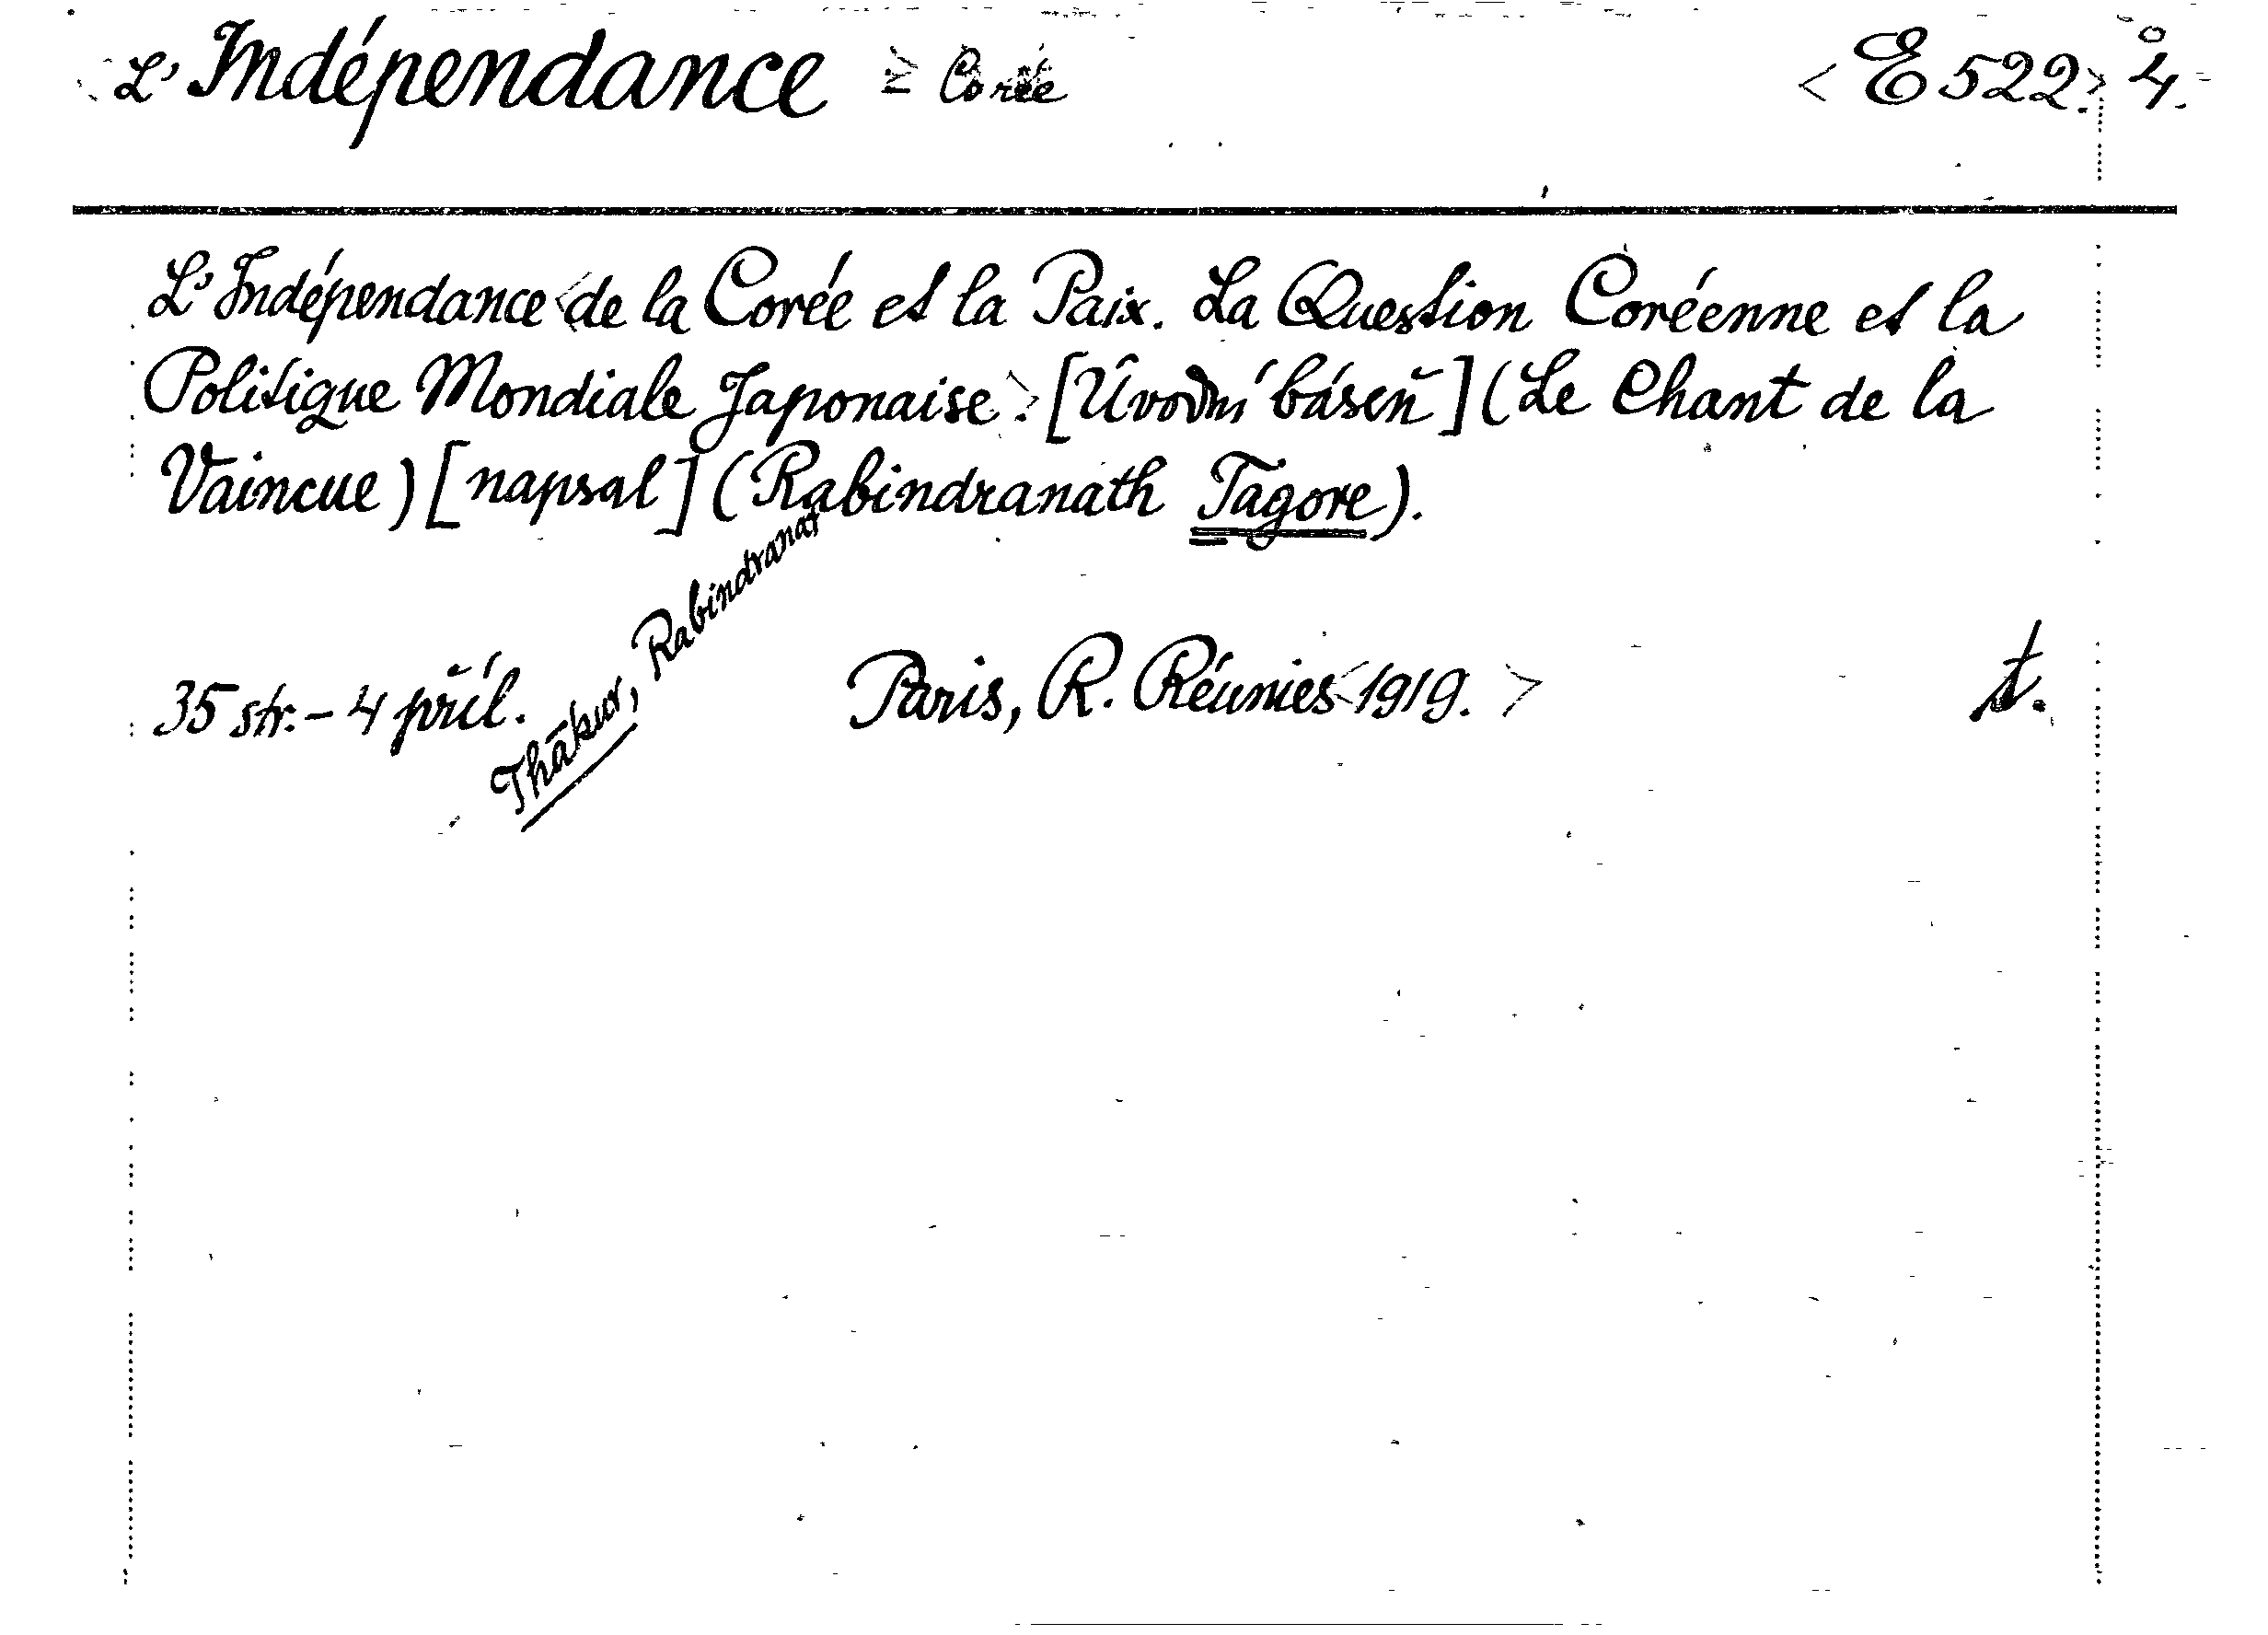 L' Indépendance = Corée <E 522.> 4°.
L' Indépendance <de la Corée et la Paix. La Question Coréenne et la
Politique Mondiale Japonaise.> [Úvodní báseň] (Le Chant de la
Vaincue) [napsal] (Rabindranath Tagore).
Thākur, Rabindranat
35 str. – 4 příl. Paris, R. Réunies <1919.> t.